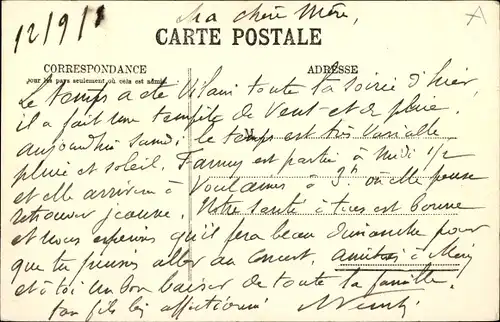 12/9/1
Ma chère Mère,
CARTE POSTALE
CORRESPONDANCE
ADRESSE
pour les pays seulement où cela est admis
Le temps a été vilain toute la soirée d'hier,
il a fait une tempête de vent et de pluie.
aujourdhui samedi le temps est très variable
pluie et soleil. Fanny est partie à midi 1/2
et elle arrivera à 3h où elle pense
retrouver Jeanne. Notre santé à tous est bonne
et nous espérons qu'il fera beau dimanche pour
que tu puisses aller au concert. amitiés à
et à toi un bon baiser de toute la famille.
ton fils bien affectionné